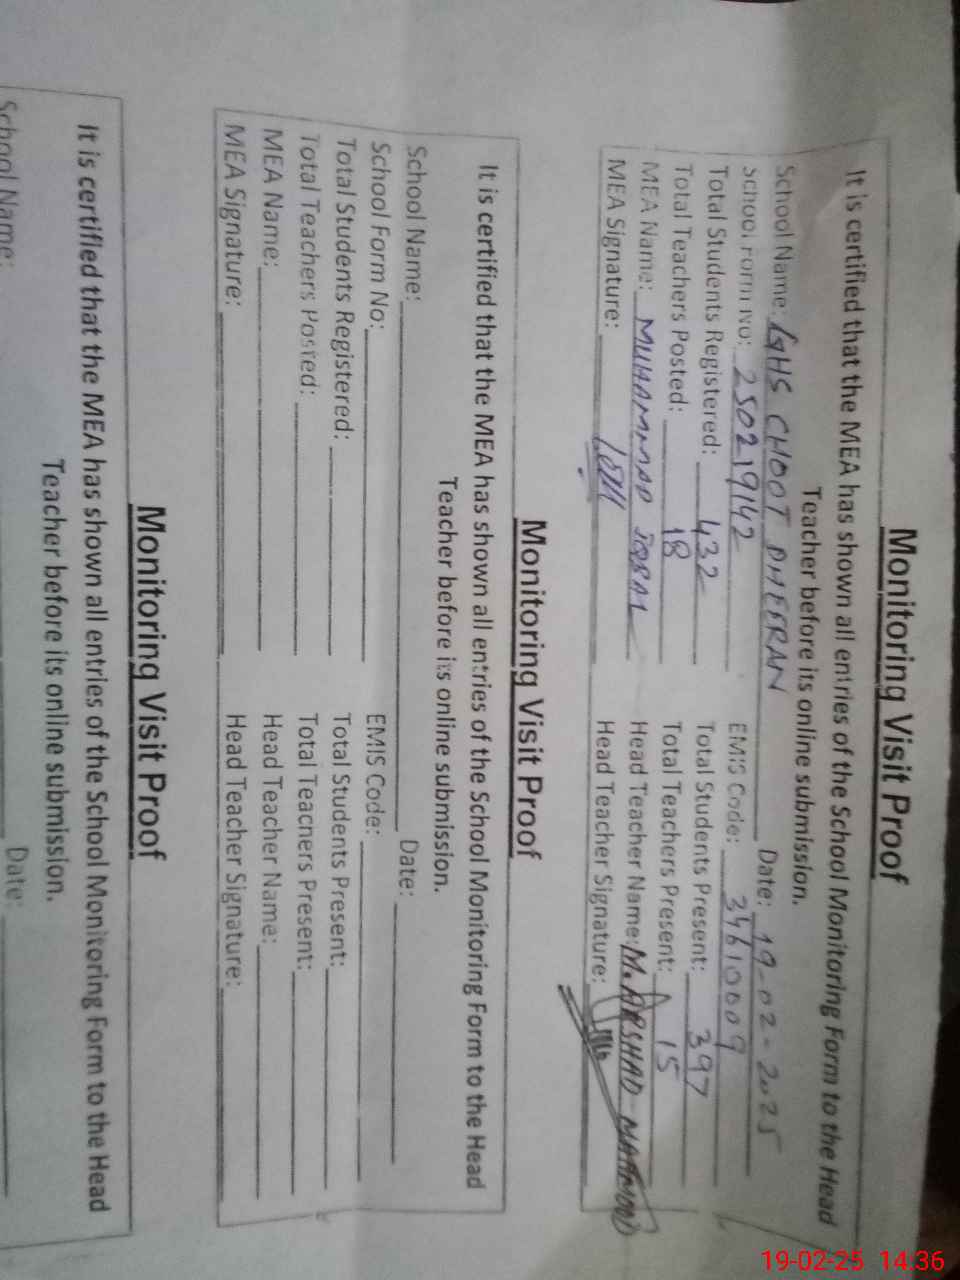 Monitoring Visit Proof
It is certified that the MEA has shown all entries of the School Monitoring Form to the Head
Teacher before its online submission.
School Name: GHS CHOOT DHEERAN Date: 19-02-2025
School Form No: 250219142 EMIS Code: 34610009
Total Students Registered: 432 Total Students Present: 397
Total Teachers Posted: 18 Total Teachers Present: 15
MEA Name: MUHAMMAD IQBAL Head Teacher Name: M. ARSHAD MAHMOOD
MEA Signature: Head Teacher Signature:
Monitoring Visit Proof
It is certified that the MEA has shown all entries of the School Monitoring Form to the Head
Teacher before its online submission.
School Name: Date:
School Form No: EMIS Code:
Total Students Registered: Total Students Present:
Total Teachers Posted: Total Teachers Present:
MEA Name: Head Teacher Name:
MEA Signature: Head Teacher Signature:
Monitoring Visit Proof
It is certified that the MEA has shown all entries of the School Monitoring Form to the Head
Teacher before its online submission.
School Name: Date:
19-02-25 14:36